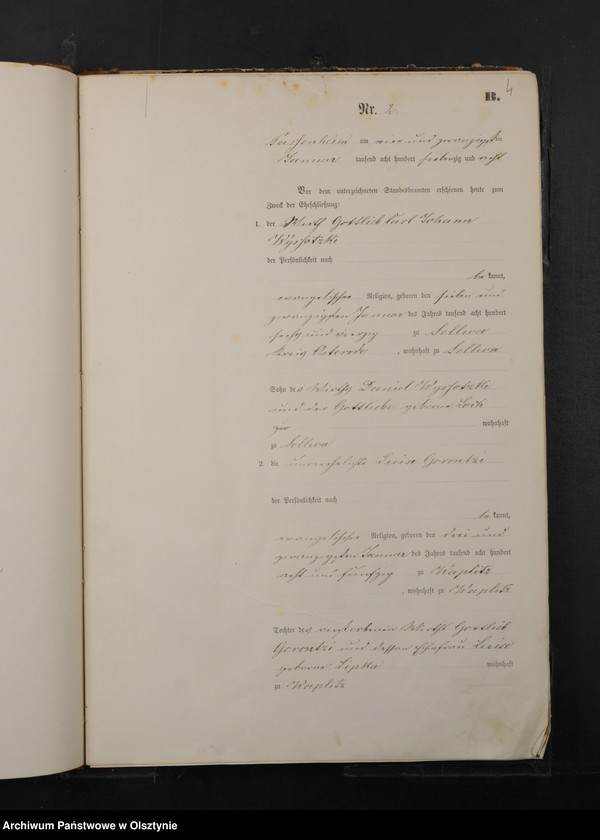 B. 4
Nr. 2.
Passenheim am vier und zwanzigsten
Januar tausend acht hundert siebenzig und acht
Vor dem unterzeichneten Standesbeamten erschienen heute zum
Zweck der Eheschließung:
1. der Wirth Gottlieb Carl Johann
Wyssotzki
der Persönlichkeit nach
bekannt,
evangelischer Religion, geboren den sieben und
zwanzigsten Januar des Jahres tausend acht hundert
sechs und vierzig zu Sellwa
Kreis Osterode, wohnhaft zu Sellwa
Sohn des Wirths Daniel Wyssotzki
und der Gottliebe geborne
wohnhaft
zu Sellwa
2. die unverehelichte Luise Gorontzi
der Persönlichkeit nach
bekannt,
evangelischer Religion, geboren den drei und
zwanzigsten Januar des Jahres tausend acht hundert
acht und fünfzig zu Waplitz
, wohnhaft zu Waplitz
Tochter des verstorbenen Wirths Gottlieb
Gorontzi und dessen Ehefrau Luise
geborne Lipka wohnhaft
zu Waplitz
Archiwum Państwowe w Olsztynie